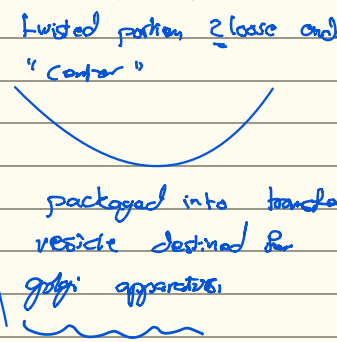 twisted portion 2 loose end
"Center"
packaged into transfe
vesicle destined for
golgi apparatus,